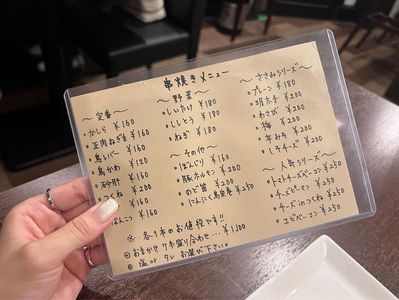 串焼きメニュー
〜定番〜
・かしら ¥160
・正肉ねぎま ¥160
・鳥レバー ¥160
・鳥かわ ¥120
・砂肝 ¥160
・つくね ¥200
なんこつ ¥160
〜野菜〜
・しいたけ ¥180
・ししとう ¥180
・ねぎ ¥180
〜その他〜
・ぼんじり ¥160
・豚ホルモン ¥200
・のど笛 ¥200
・にんにく
¥250
〜ささみシリーズ〜
・プレーン ¥180
・明太子 ¥200
・わさび ¥200
・梅 ¥200
・辛みそ ¥200
・しそチーズ ¥200
〜人気シリーズ〜
・トマトチーズベーコン ¥250
・チーズピーマン ¥250
・チーズinつくね ¥250
・エビベーコン ¥250
※ 各1本のお値段です!!
◎おまかせ7本盛り合わせ... ¥1,100
◎塩orタレ お選び下さい。